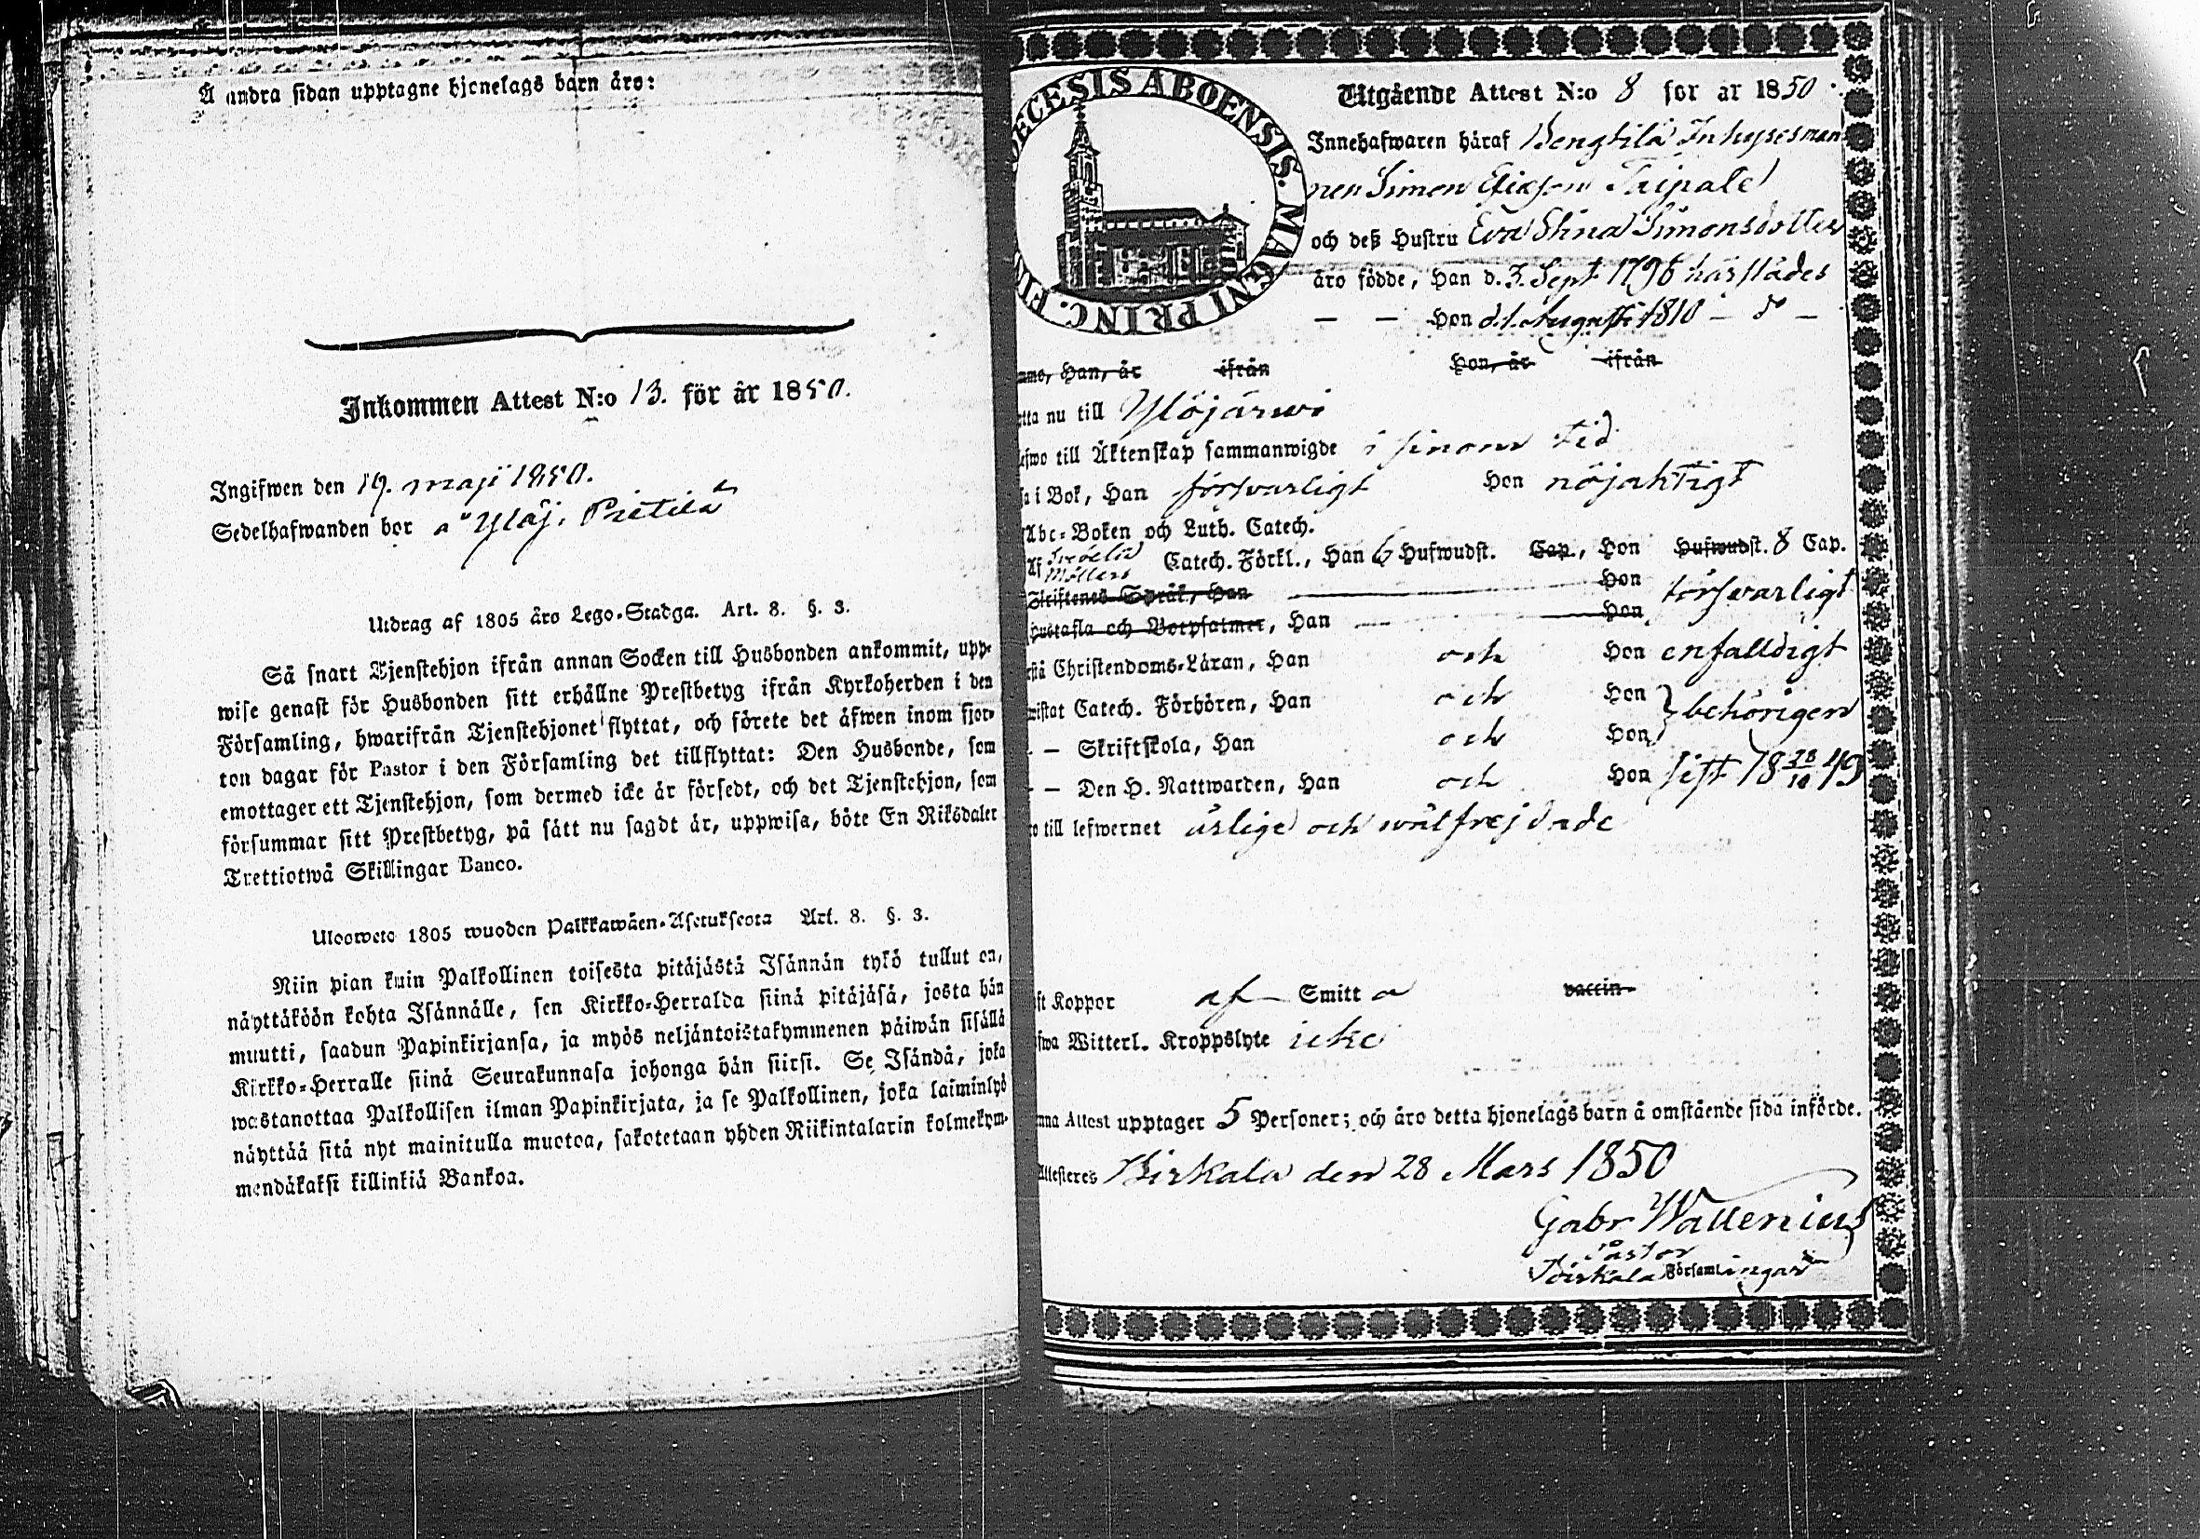 Å andra sidan upptagne hjonelags barn äro:
Inkommen Attest N:o 13. för år 1850.
Ingifwen den 19. maji 1850.
Sedelhafwanden bor å Ylöj. Pietilä
Utdrag af 1805 års Lego-Stadga. Art. 8. §. 3.
Så snart Tjenstehjon ifrån annan Socken till Husbonden ankommit, upp-
wise genast för Husbonden sitt erhållne Prestbetyg ifrån Kyrkoherden i den
Församling, hwarifrån Tjenstehjonet flyttat, och förete det äfwen inom fjor-
ton dagar för Pastor i den Församling det tillflyttat: Den Husbonde, som
emottager ett Tjenstehjon, som dermed icke är försedt, och det Tjenstehjon, som
försummar sitt Prestbetyg, på sätt nu sagdt är, uppwisa, böte En Riksdaler
Trettiotwå Skillingar Banco.
Uloswete 1805 wuoden Palkkawäen-Asetuksesta Art. 8. §. 3.
Niin pian kuin Palkollinen toisesta pitäjästä Isännän tykö tullut on,
näyttäköön kohta Isännälle, sen Kirkko-Herralda siinä pitäjäsä, josta hän
muutti, saadun Papinkirjansa, ja myös neljäntoistakymmenen päiwän sisällä
Kirkko-Herralle siinä Seurakunnasa johonga hän siirsi. Se Isändä, joka
wastanottaa Palkollisen ilman Papinkirjata, ja se Palkollinen, joka laiminlyö
näyttää sitä nyt mainitulla muotoa, sakotetaan yhden Riikintalarin kolmekym-
mendäkaksi killinkiä Bankoa.
ECESIS ABOENSIS. MAGNI PRINC. FI
Utgående Attest N:o 8 for år 1850.
Innehafwaren häraf Bengtilä Inhysesman
nen Simon Ericsson Taipale
och deß Hustru Eva Stina Simonsdotter
äro födde, Han d. 3. Sept 1796 härstädes
— — Hon d. 1. Augusti 1810 — d:o —
mne, Han, år ifrån Hon, år ifrån
tta nu till Ylöjärwi
efwo till Äktenskap sammanwigde i sinom tid
a i Bok, Han försvarligt Hon nöjaktigt
Abc-Boken och Luth. Catech.
Af Svebelii Möllers Catech. Förkl., Han 6 Hufwudst. Cap., Hon Hufwudst. 8 Cap.
Skriftenes Språk, Han — Hon försvarligt
Hustafla och Botpsalmer, Han — Hon
stå Christendoms-Läran, Han och Hon enfalldigt
wistat Catech. Förhören, Han och Hon
— Skriftskola, Han och Hon behörigen
— Den H. Nattwarden, Han och Hon sist 18 28/10 49
o till lefwernet ärlige och wälfrejdade
ft Koppor af Smitta vaccin.
fwa Witterl. Kroppslyte icke
nna Attest upptager 5 Personer; och äro detta hjonelags barn å omstående sida införde.
Attesteres Birkala den 28 Mars 1850
Gabr Wallenius
Pastor
Birkala Församlingar